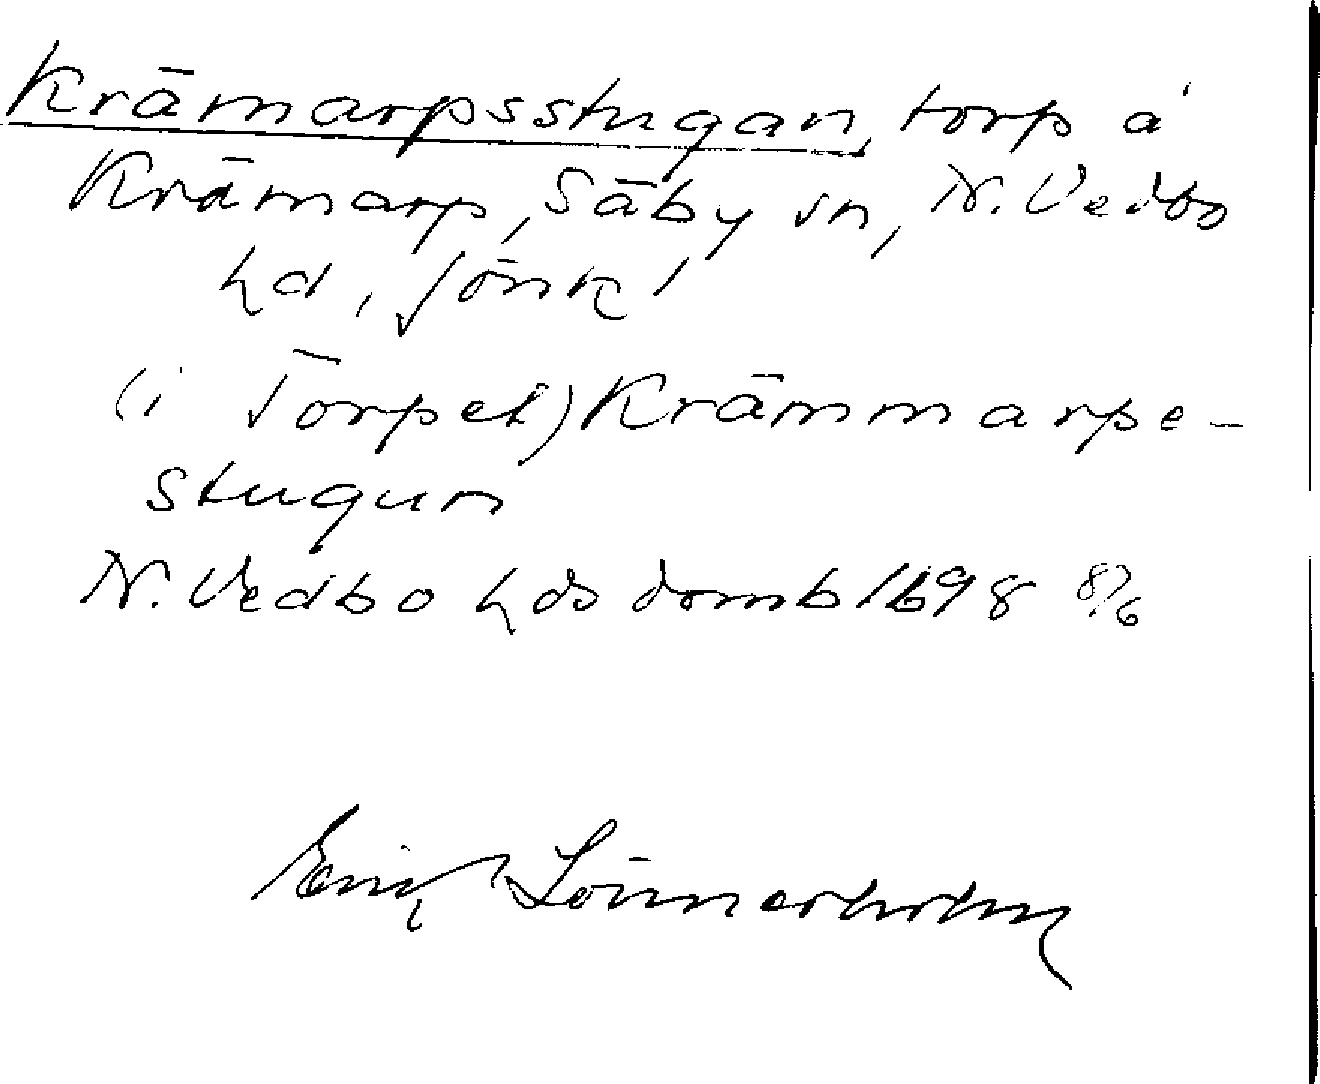 Krämarpsstugan, torp å
Krämarp, Säby sn, N. Vedbo
hd, Jönk.
(i Torpet) Krämmarpe-
stugun
N. Vedbo hds domb 1698 8/6
Lönnerholm